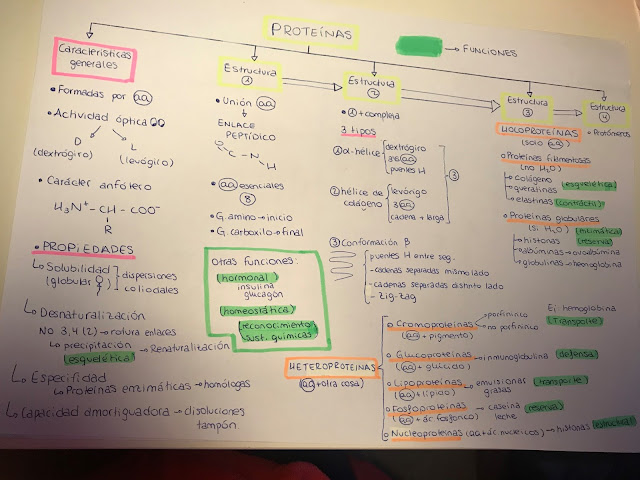 PROTEÍNAS
→ FUNCIONES
Características
generales
• Formadas por aa
• Actividad óptica
D L
(dextrógiro) (levógiro)
• Carácter anfótero
H₃N⁺ – CH – COO⁻
R
• PROPIEDADES
↳ Solubilidad
(globular)
dispersiones
coloidales
↳ Desnaturalización
No 3,4 (2) → rotura enlaces
↳ precipitación → Renaturalización
esquelética
↳ Especifidad
↳ Proteínas enzimáticas → homólogas
↳ Capacidad amortiguadora → disoluciones
tampón.
Estructura
1
• Unión aa
ENLACE
PEPTÍDICO
O C N H
• aa esenciales
8
• G. amino → inicio
G. carboxilo → final
Otras funciones:
hormonal
insulina
glucagón
homeostática
reconocimiento
sust. químicas
Estructura
2
• 1 + compleja
3 tipos
1 α-hélice
dextrógiro
3'6 aa
puentes H
2 hélice de
colágeno
levógiro
3 aa
cadena + larga
3
3 Conformación B
puentes H entre seg.
- cadenas separadas mismo lado
- cadenas separadas distinto lado
- zig-zag
Estructura
3
HOLOPROTEÍNAS
(solo aa)
Proteínas filamentosas
(no H₂O)
colágeno
queratinas
elastinas
esquelética
contráctil
Proteínas globulares
(si H₂O)
enzimática
reserva
histonas
albúminas → ovoalbúmina
globulinas → hemoglobina
Estructura
4
• Protómeros
HETEROPROTEÍNAS
(aa + otra cosa)
Cromoproteínas
(aa + pigmento)
porfirínico
no porfirínico
Ej: hemoglobina
Transporte
Glucoproteínas → inmunoglobulina defensa
(aa + glúcido)
Lipoproteínas → emulsionar transporte
(aa + lípido) grasas
Fosfoproteínas → caseína reserva
(aa + ác. fosfórico) leche
Nucleoproteínas (aa + ác. nucleicos) → histonas estructural